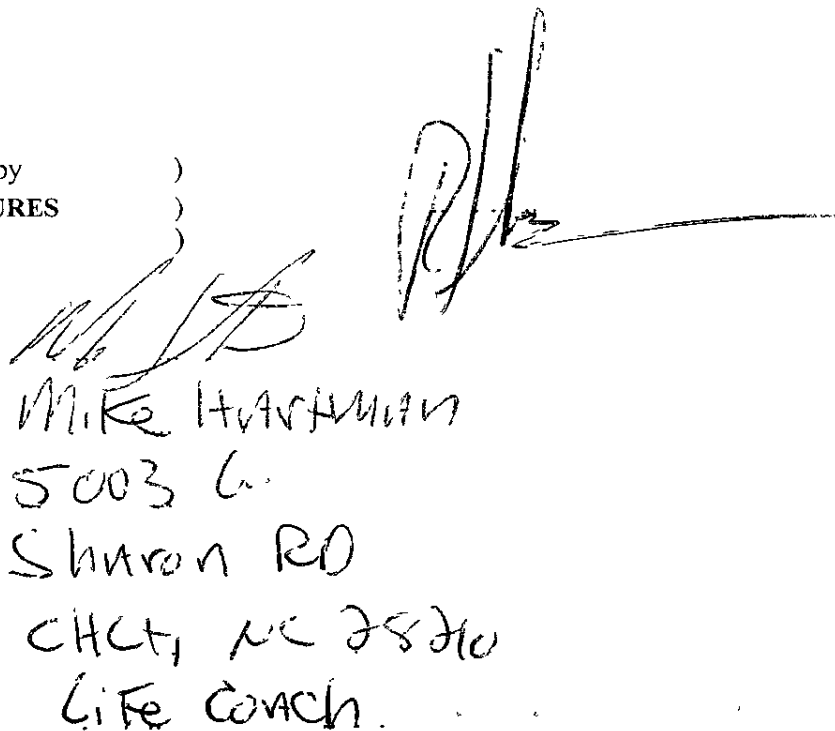 by )
URES )
)
Mike Hartman
5003 C.
Sharon RD
CHLt, NC 28210
Life Coach.